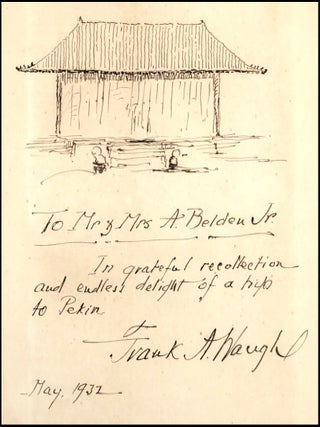 To Mr & Mrs A. Belden Jr
In grateful recollection
and endless delight of a trip
to Pekin
Frank A. Waugh
May, 1932